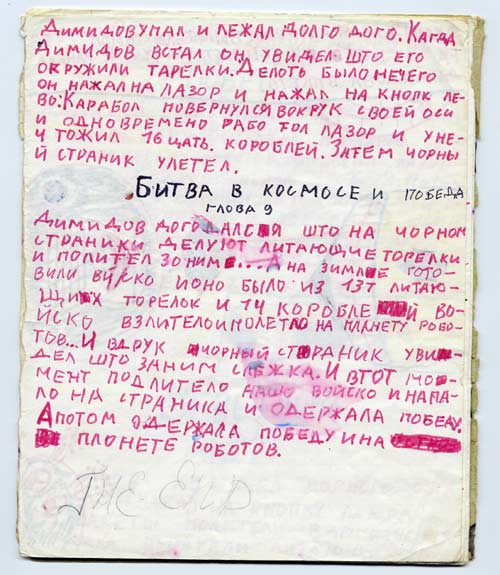 ДИМИДОВ УПАЛ И ЛЕЖАЛ ДОЛГО ДОГО. КАГДА
ДИМИДОВ ВСТАЛ ОН УВИДЕЛ ШТО ЕГО
ОКРУЖИЛИ ТАРЕЛКИ. ДЕЛОТЬ БЫЛО НЕЧЕГО
ОН НАЖАЛ НА ЛАЗОР И НАЖАЛ НА КНОПК ЛЕ-
ВО. КАРАБОЛ ПОВЕРНУЛСЯ ВОКРУК СВОЕЙ ОСИ
И ОДНОВРЕМЕНО РАБОТОЛ ЛАЗОР И УНЕ-
Ч ТОЖИЛ 16 ЦАТЬ. КОРОБЛЕЙ. ЗАТЕМ ЧОРНЫ
Й СТРАНИК УЛЕТЕЛ.
БИТВА В КОСМОСЕ И ПОБЕДА
ГЛОВА 9
ДИМИДОВ ДОГОДАЛСЯ ШТО НА ЧОРНОМ
СТРАНИКИ ДЕЛУЮТ ЛИТАЮЩИЕ ТОРЕЛКИ
И ПОЛИТЕЛ ЗО НИМ... А НА ЗИМЛЕ ГОТО-
ВИЛИ ВИСКО ИОНО БЫЛО ИЗ 13Т ЛИТАЮ-
ЩИХ ТОРЕЛОК И 14 КОРОБЛЕ Й ВО-
ЙСКО ВЗЛИТЕЛО И ПОЛЕТЛО НА ПЛАНЕТУ РОБО-
ТОВ... И ВДРУК ЧОРНЫЙ СТРАНИК УВИ-
ДЕЛ ШТО ЗАНИМ СЛЕЖКА. И ВТОТ МО-
МЕНТ ПОДЛИТЕЛО НАШО ВОЙСКО И НАПА-
ЛО НА СТРАНИКА И ОДЕРЖАЛА ПОБЕДУ.
А ПОТОМ ОДЕРЖАЛА ПОБЕДУ И НА
ПЛОНЕТЕ РОБОТОВ.
THE END